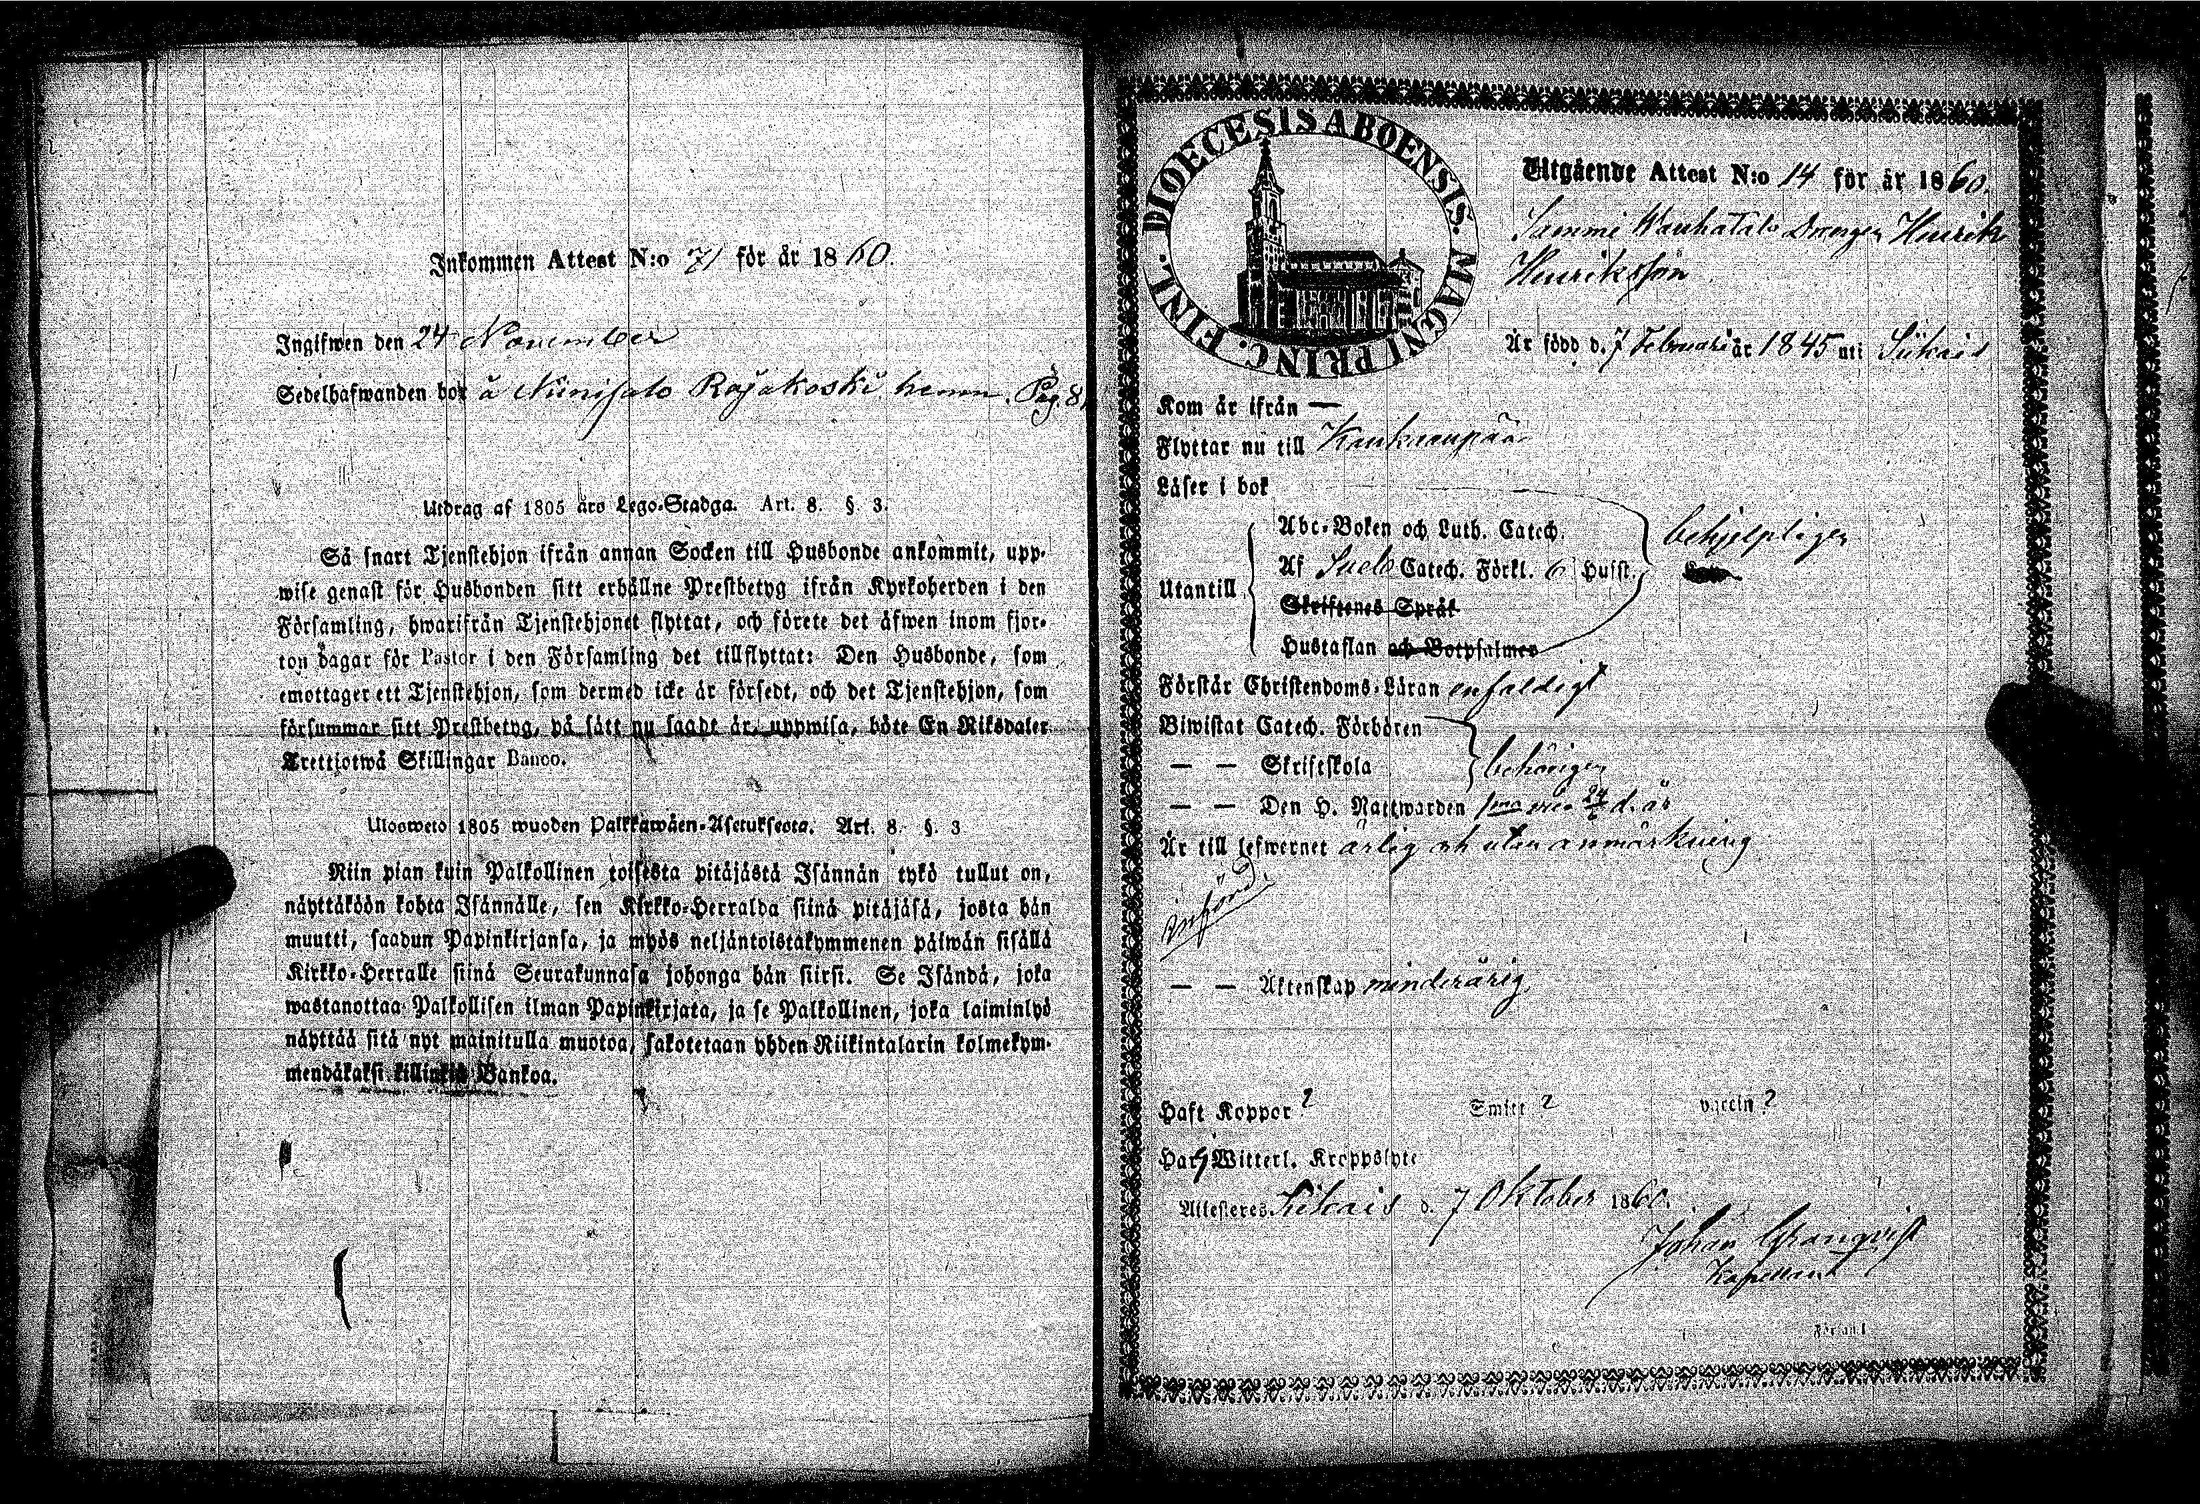 Inkommen Attest N:o 71 för år 1860.
Ingifwen den 24 November
Sedelhafwanden bor å Niinisalo Rajakoski hemm. Pag. 8
Utdrag af 1805 års Lego-Stadga. Art. 8. §. 3.
Så snart Tjenstehjon ifrån annan Socken till Husbonde ankommit, upp-
wise genast för Husbonden sitt erhållne Prestbetyg ifrån Kyrkoherden i den
Församling, hwarifrån Tjenstehjonet flyttat, och förete det äfwen inom fjor-
ton dagar för Pastor i den Församling det tillflyttat: Den Husbonde, som
emottager ett Tjenstehjon, som dermed icke är försedt, och det Tjenstehjon, som
försummar sitt Prestbetyg, på sätt nu sagdt är, uppwisa, böte En Riksdaler
Trettiotwå Skillingar Banco.
Ulosweto 1805 wuoden Palkkawäen-Asetuksesta. Art. 8. §. 3
Niin pian kuin Palkollinen toisesta pitäjästä Isännän tykö tullut on,
näyttäköön kohta Isännälle, sen Kirkko-Herralda siinä pitäjäsä, josta hän
muutti, saadun Papinkirjansa, ja myös neljäntoistakymmenen päiwän sisällä
Kirkko-Herralle siinä Seurakunnasa johonga hän siirsi. Se Isändä, joka
wastanottaa Palkollisen ilman Papinkirjata, ja se Palkollinen, joka laiminlyö
näyttää sitä nyt mainitulla muotoa, sakotetaan yhden Riikintalarin kolmekym-
mendäkaksi killinkiä Bankoa.
DIOECESIS ABOENSIS. MAGNI PRINC. FINL.
Utgående Attest N:o 14 för år 1860.
Sammi Wanhatalo Drengen Henrik
Henriksson
Är född d. 7 Februari år 1845 uti Siikais
Kom år ifrån —
Flyttar nu till Kankaanpää
Läser i bok
Abc-Boken och Luth. Catech.
behjelpligen
Utantill
Af Sveb Catech. Förkl. 6 Hufst.
Skriftenes Språk
Hustaflan och Botpsalmer
Förstår Christendoms-Läran enfaldigt
Biwistat Catech. Förhören
— — Skriftskola
behörigen
— — Den H. Nattwarden 1ma 24/6 d. år
Är till lefwernet ärlig och utan anmärkning
införd.
— — Äktenskap minderårig
Haft Koppor ?
Har Witterl. Kroppslyte
Attesteres Siikais d. 7 Oktober 1860.
Johan Granqvist
Kapellan